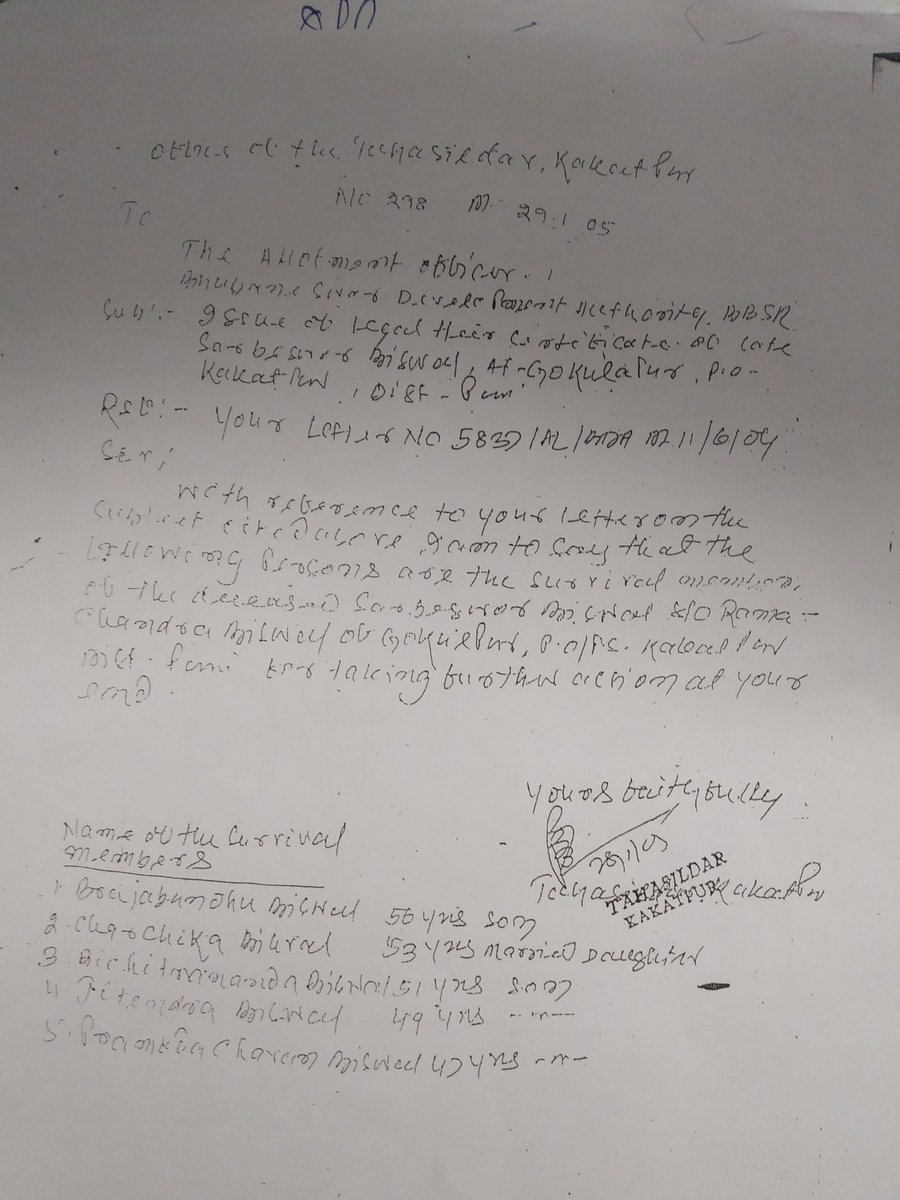 Office of the Tahasildar, Kakatpur
No 298 Dt. 29.1.05
To
The Allotment Officer,
Bhubaneswar Development Authority, BBSR
Sub:- Issue of legal Heir Certificate of late
Sarbeswar Biswal, At-Gokulapur, P.O-
Kakatpur, Dist - Puri
Ref:- Your Letter No 5837/AL/BDA Dt 11/6/04
Sir,
With reference to your letter on the
subject cited above I am to say that the
following persons are the survival members
of the deceased Sarbeswar Biswal S/O Rama-
Chandra Biswal of Gokulpur, P.O/P.S. Kakatpur
Dist. Puri for taking further action at your
end.
Yours faithfully
Tahasildar Kakatpur
TAHASILDAR
KAKATPUR
Name of the Survival
members
1. Brajabandhu Biswal 56 yrs son
2. Charchika Biswal 53 yrs Married Daughter
3. Bichitrananda Biswal 51 yrs son
4. Jitendra Biswal 49 yrs --"--
5. Charan Biswal 47 yrs -"-